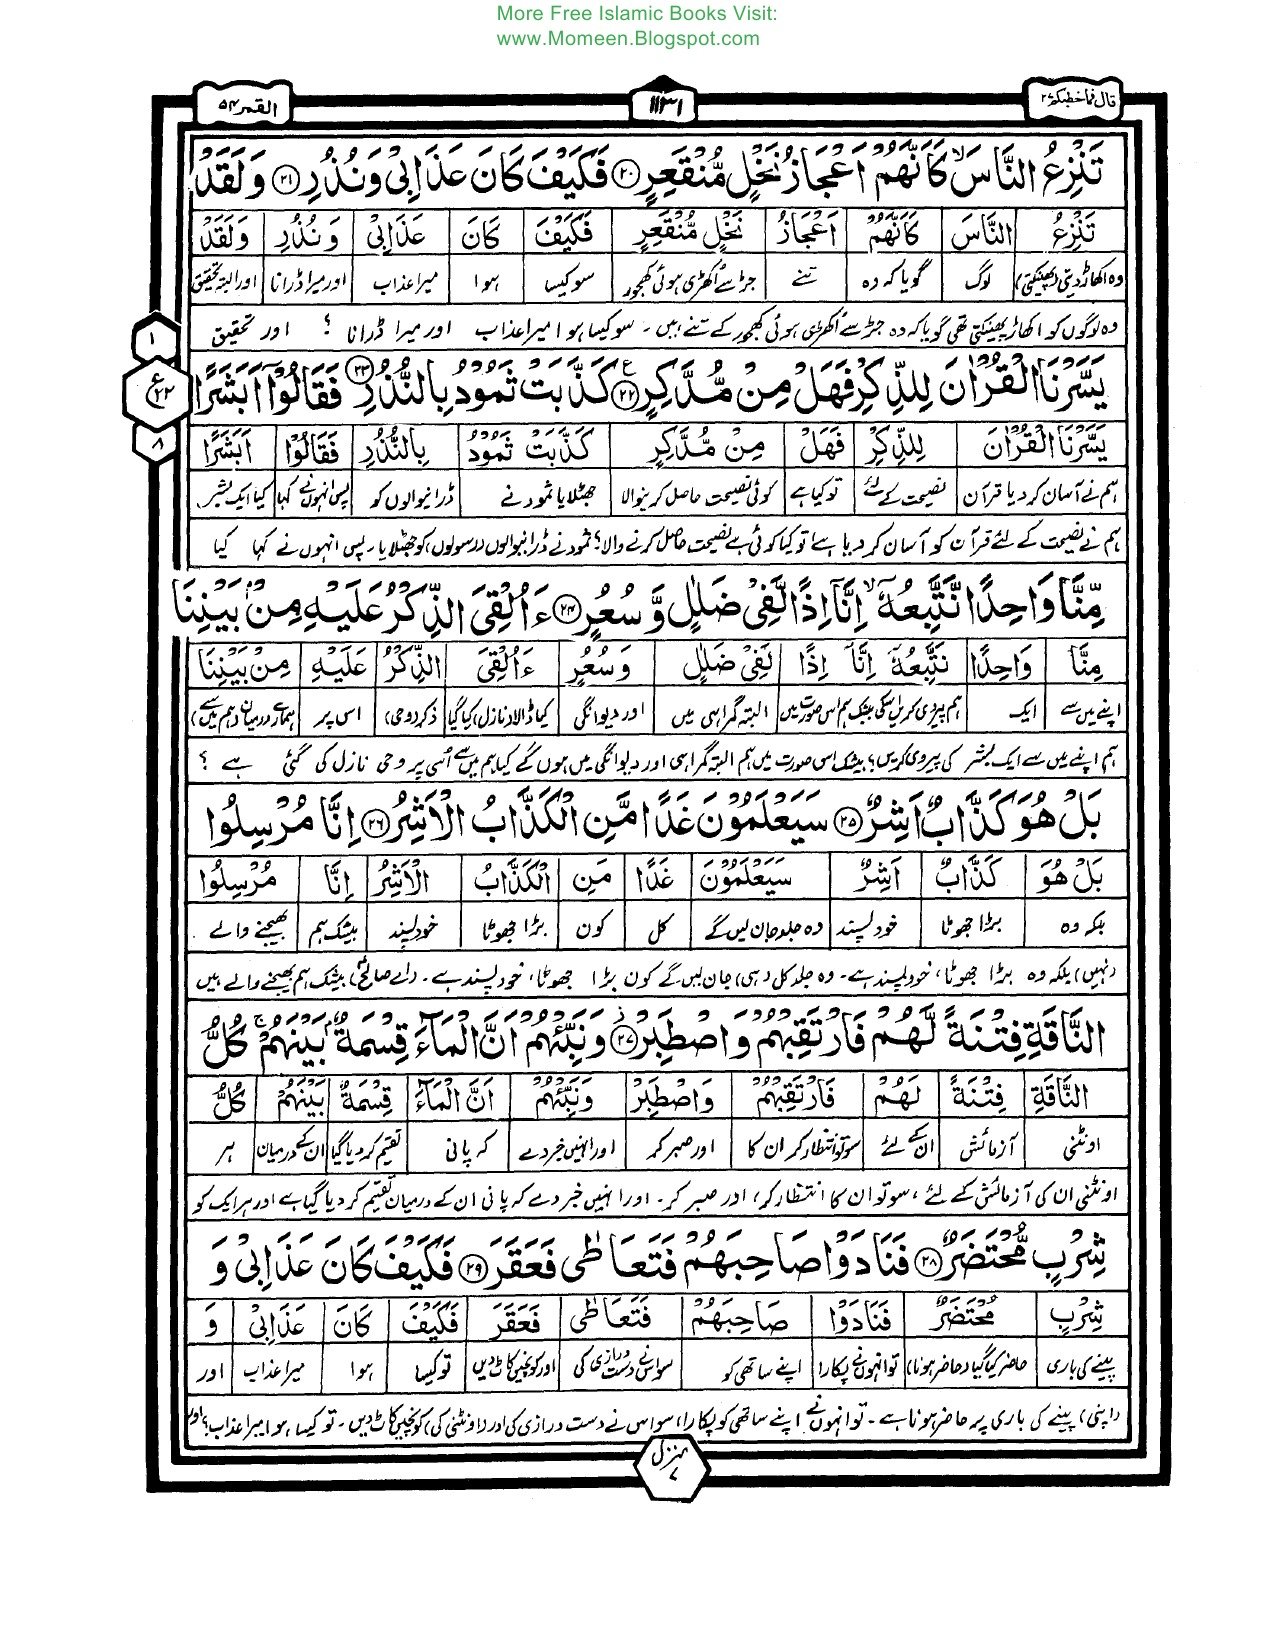 More Free Islamic Books Visit:
www.Momeen.Blogspot.com
قال فماخطبکم ۲۷
۱۱۳۱
القمر ۵۴
تَنْزِعُ النَّاسَ ۙ كَاَنَّهُمْ اَعْجَازُ نَخْلٍ مُّنْقَعِرٍ ۝۲۰ فَكَيْفَ كَانَ عَذَابِيْ وَنُذُرِ ۝۲۱ وَلَقَدْ
تَنْزِعُ النَّاسَ كَاَنَّهُمْ اَعْجَازُ نَخْلٍ مُّنْقَعِرٍ فَكَيْفَ كَانَ عَذَابِيْ وَنُذُرِ وَلَقَدْ
وہ اکھاڑ دیتی (پھینکتی) لوگ گویا کہ وہ تنے جڑ سے اُکھڑی ہوئی کھجور سو کیسا ہوا میرا عذاب اور میرا ڈرانا اور البتہ تحقیق
وہ لوگوں کو اکھاڑ پھینکتی تھی گویا کہ وہ جڑ سے اُکھڑی ہوئی کھجور کے تنے ہیں۔ سو کیسا ہوا میرا عذاب اور میرا ڈرانا ؟ اور تحقیق
۱
ع ۲۲
۸
يَسَّرْنَا الْقُرْاٰنَ لِلذِّكْرِ فَهَلْ مِنْ مُّدَّكِرٍ ۝۲۲ ع كَذَّبَتْ ثَمُوْدُ بِالنُّذُرِ ۝۲۳ فَقَالُوْۤا اَبَشَرًا
يَسَّرْنَا الْقُرْاٰنَ لِلذِّكْرِ فَهَلْ مِنْ مُّدَّكِرٍ كَذَّبَتْ ثَمُوْدُ بِالنُّذُرِ فَقَالُوْۤا اَبَشَرًا
ہم نے آسان کر دیا قرآن نصیحت کے لئے تو کیا ہے کوئی نصیحت حاصل کرنیوالا جھٹلایا ثمود نے ڈرانیوالوں کو پس انہوں نے کہا کیا ایک بشر
ہم نے نصیحت کے لئے قرآن کو آسان کر دیا ہے تو کیا کوئی ہے نصیحت حاصل کرنے والا؟ ثمود نے ڈرانیوالوں (رسولوں) کو جھٹلایا۔ پس انہوں نے کہا کیا
مِّنَّا وَاحِدًا نَّتَّبِعُهٗۤ ۙ اِنَّاۤ اِذًا لَّفِيْ ضَلٰلٍ وَّسُعُرٍ ۝۲۴ ءَاُلْقِيَ الذِّكْرُ عَلَيْهِ مِنْۢ بَيْنِنَا
مِنَّا وَاحِدًا نَتَّبِعُهٗۤ اِنَّاۤ اِذًا لَفِيْ ضَلٰلٍ وَسُعُرٍ ءَاُلْقِيَ الذِّكْرُ عَلَيْهِ مِنْۢ بَيْنِنَا
اپنے میں سے ایک ہم پیروی کریں اسکی بیشک ہم اس صورت میں البتہ گمراہی میں اور دیوانگی کیا ڈالا (نازل) کیا گیا ذکر (وحی) اس پر ہمارے درمیان (ہم میں) سے
ہم اپنے میں سے ایک بشر کی پیروی کریں؟ بیشک اس صورت میں ہم البتہ گمراہی اور دیوانگی میں ہوں گے کیا ہم میں سے اُسی پر وحی نازل کی گئی ہے ؟
بَلْ هُوَ كَذَّابٌ اَشِرٌ ۝۲۵ سَيَعْلَمُوْنَ غَدًا مَّنِ الْكَذَّابُ الْاَشِرُ ۝۲۶ اِنَّا مُرْسِلُوا
بَلْ هُوَ كَذَّابٌ اَشِرٌ سَيَعْلَمُوْنَ غَدًا مَنِ الْكَذَّابُ الْاَشِرُ اِنَّا مُرْسِلُوا
بلکہ وہ بڑا جھوٹا خود پسند وہ جلد جان لیں گے کل کون بڑا جھوٹا خود پسند بیشک ہم بھیجنے والے
(نہیں) بلکہ وہ بڑا جھوٹا، خود پسند ہے۔ وہ جلد کل (ہی) جان لیں گے کون بڑا جھوٹا، خود پسند ہے۔ (اے صالحؑ) بیشک ہم بھیجنے والے ہیں
النَّاقَةِ فِتْنَةً لَّهُمْ فَارْتَقِبْهُمْ وَاصْطَبِرْ ۝۲۷ وَنَبِّئْهُمْ اَنَّ الْمَآءَ قِسْمَةٌۢ بَيْنَهُمْ ۚ كُلُّ
النَّاقَةِ فِتْنَةً لَهُمْ فَارْتَقِبْهُمْ وَاصْطَبِرْ وَنَبِّئْهُمْ اَنَّ الْمَآءَ قِسْمَةٌۢ بَيْنَهُمْ كُلُّ
اونٹنی آزمائش ان کے لئے سو تو انتظار کر ان کا اور صبر کر اور انہیں خبر دے کہ پانی تقسیم کر دیا گیا ان کے درمیان ہر
اونٹنی ان کی آزمائش کے لئے، سو تو ان کا انتظار کر، اور صبر کر۔ اور انہیں خبر دے کہ پانی ان کے درمیان تقسیم کر دیا گیا ہے اور ہر ایک کو
شِرْبٍ مُّحْتَضَرٌ ۝۲۸ فَنَادَوْا صَاحِبَهُمْ فَتَعَاطٰى فَعَقَرَ ۝۲۹ فَكَيْفَ كَانَ عَذَابِيْ وَ
شِرْبٍ مُحْتَضَرٌ فَنَادَوْا صَاحِبَهُمْ فَتَعَاطٰى فَعَقَرَ فَكَيْفَ كَانَ عَذَابِيْ وَ
پینے کی باری حاضر کیا گیا (حاضر ہونا) تو انہوں نے پکارا اپنے ساتھی کو سو اس نے دست درازی کی اور کونچیں کاٹ دیں تو کیسا ہوا میرا عذاب اور
(اپنی) پینے کی باری پر حاضر ہونا ہے۔ تو انہوں نے اپنے ساتھی کو پکارا، سو اس نے دست درازی کی اور (اونٹنی کی) کونچیں کاٹ دیں۔ تو کیسا ہوا میرا عذاب؟ اور
منزل ۷